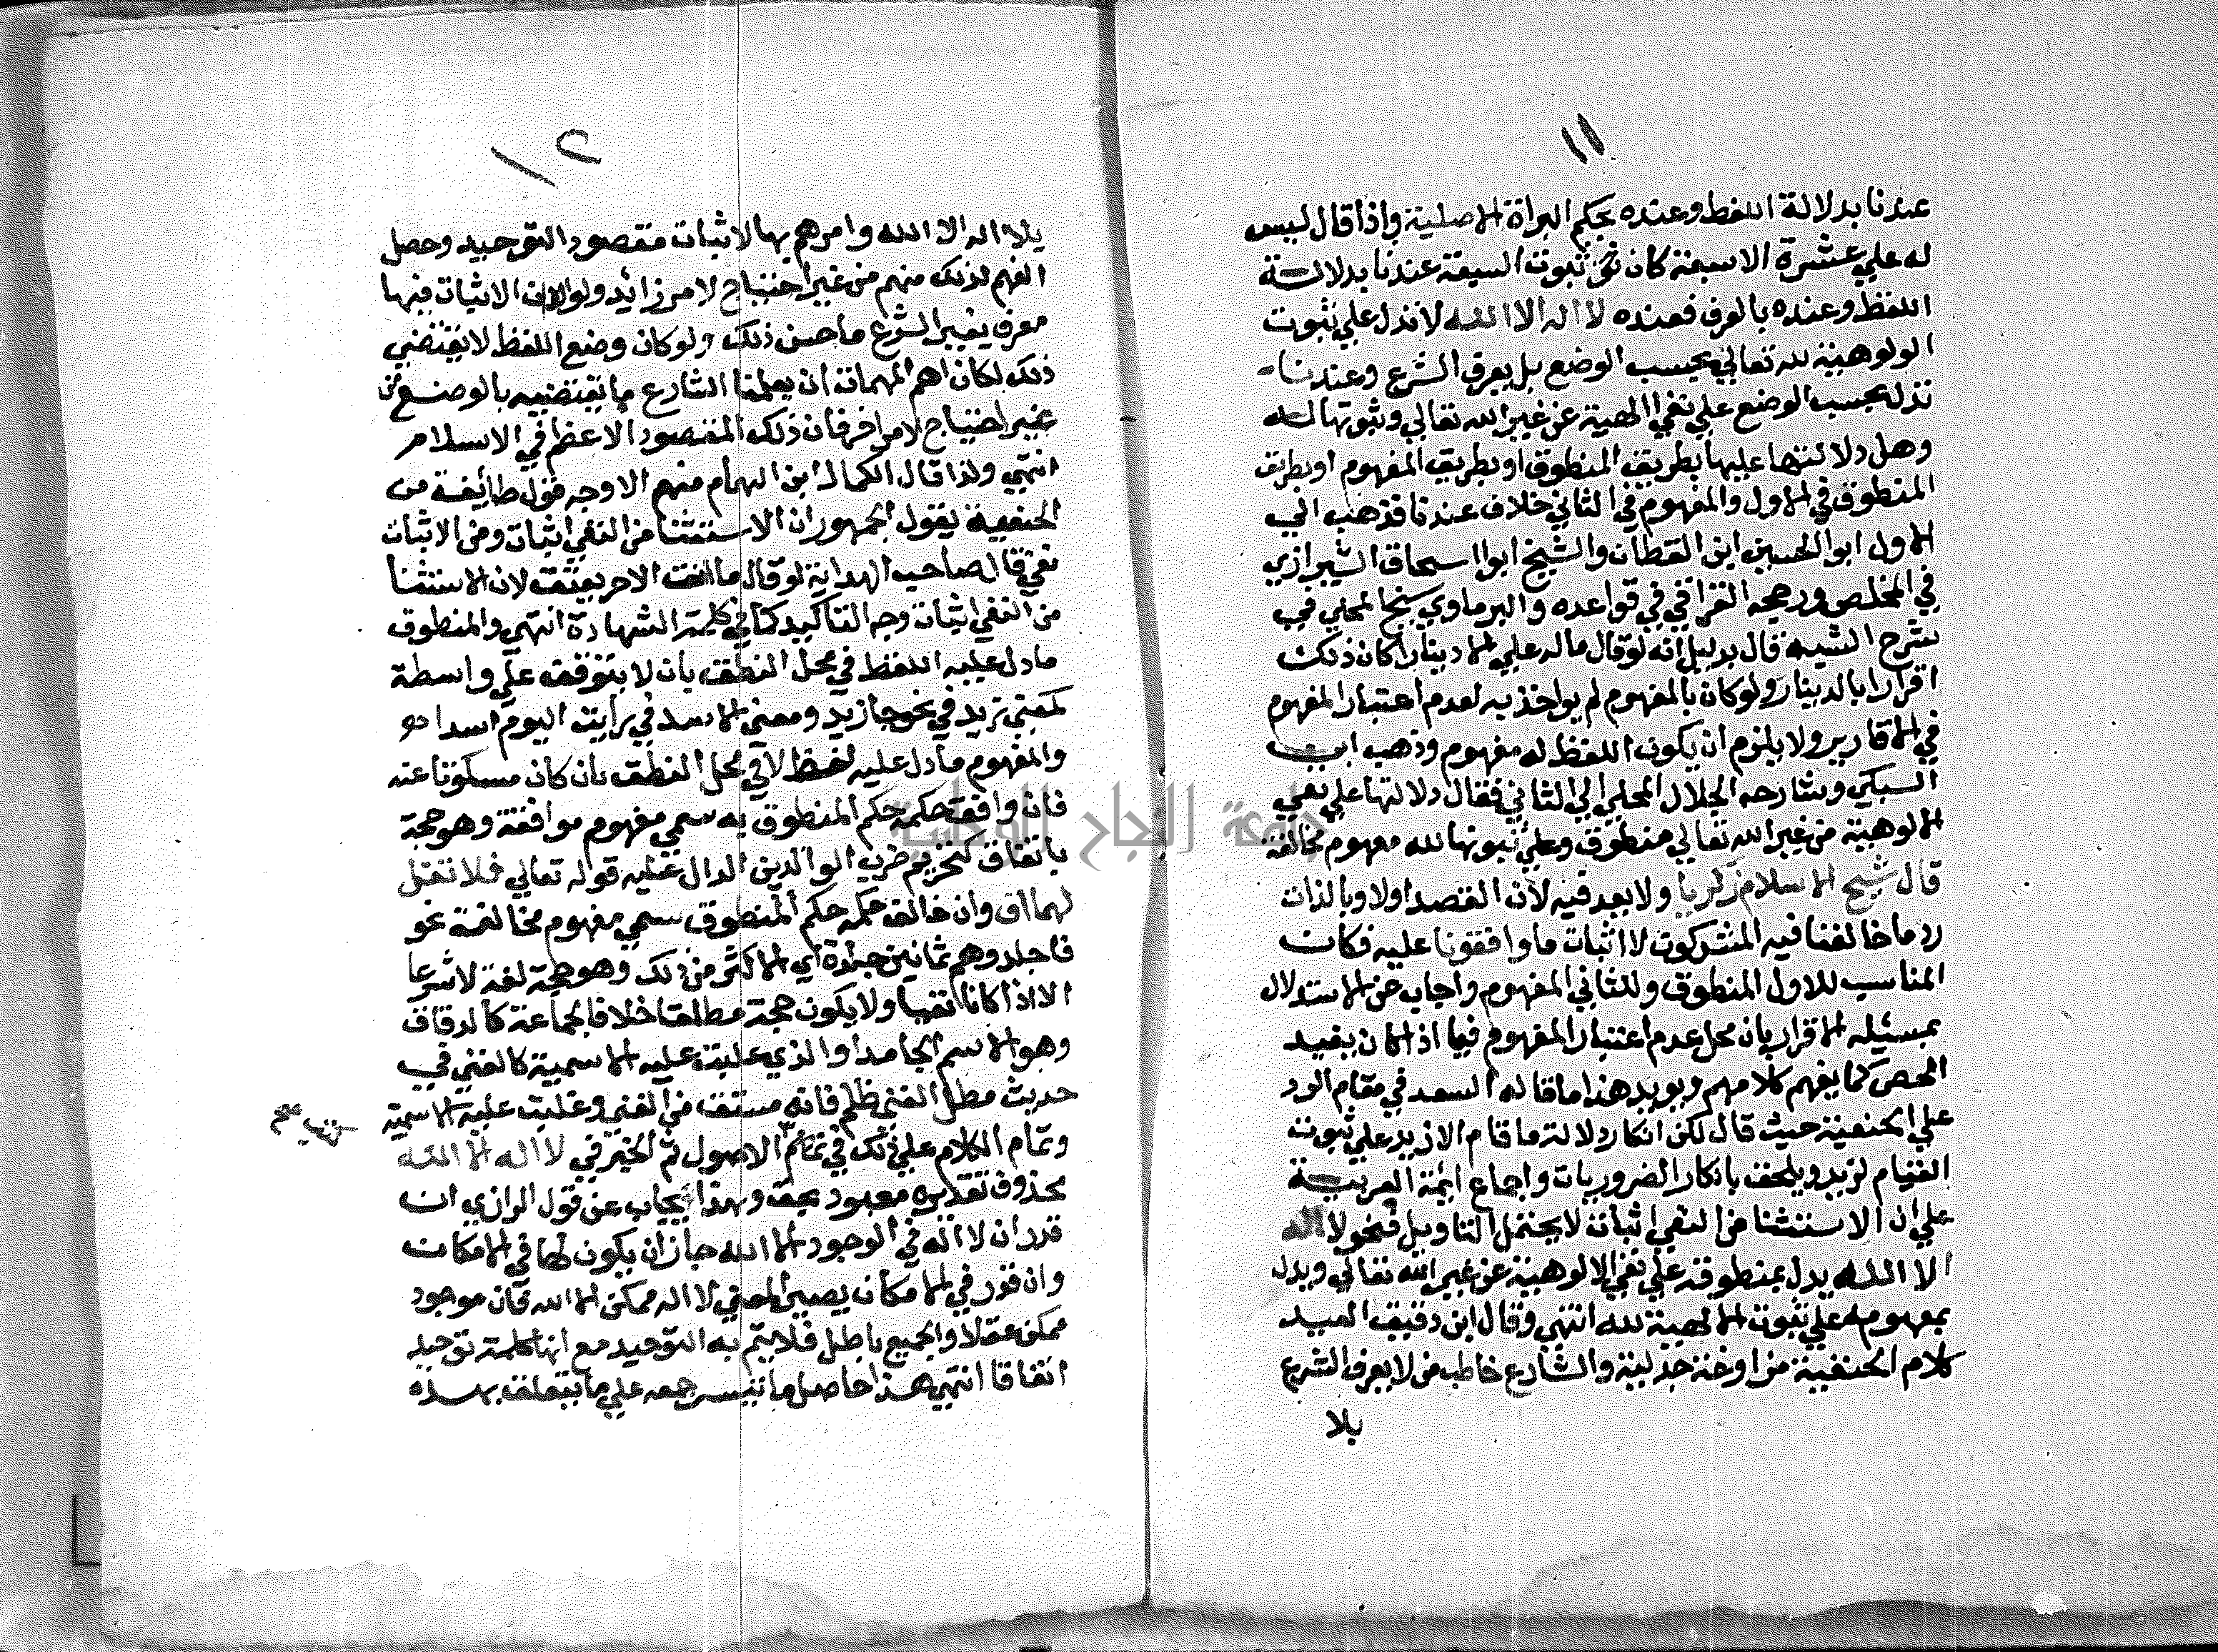 ١١
عندنا بدلالة اللفظ وعنده بحكم البراة الاصلية واذا قال ليس
له علي عشرة الاسبعة كان ثبوت السبعة عندنا بدلالة
اللفظ وعنده بالعرف فعنده لا اله الا الله لا تدل علي ثبوت
الولوهية لله تعالي بحسب الوضع بل بعرف الشرع وعندنا
تدل بحسب الوضع علي نفي الالهية عن غير الله تعالي وثبوتها لله
وهل دلالتها عليها بطريق المنطوق او بطريق المفهوم او بطريق
المنطوق في الاول والمفهوم في الثاني خلاف عندنا فذهب الي
الاول ابو الحسين ابن القطان والشيخ ابو اسحاق الشيرازي
في الملخص ورجحه القرافي في قواعده والبرماوي في
شرح قال بدليل انه لو قال ماله علي الا دينار كان ذلك
اقرارا بالدينار ولو كان بالمفهوم لم يواخذ به لعدم اعتبار المفهوم
في الاقارير ولا يلزم ان يكون اللفظ له مفهوم وذهب ابن
السبكي وشارحه الجلال المحلي الي الثاني فقال دلالتها علي نفي
الالوهية من غير الله تعالي منطوق وعلي ثبوتها لله مفهوم مخالفة
قال شيخ الاسلام زكريا ولا بعد فيه لان القصد اولا وبالذات
رد ما خالفنا فيه المشركون لا اثبات ما وافقونا عليه فكان
المناسب للاول المنطوق وللثاني المفهوم واجاب عن الاستدلال
بمسئله الاقرار بان محل عدم اعتبار المفهوم فيما اذا كان بغيد
الحص كما يفهم كلامهم ويويد هذا ما قاله السعد في مقام الرد
علي الحنفية حيث قال لكن انكار دلالة ما قام الا زيد علي ثبوت
القيام لزيد ويلحق بانكار الضروريات واجماع ايمة العربية
علي ان الاستثنا من النفي اثبات لا يحتمل التاويل فنحو لا اله
الا الله يدل بمنطوقه علي نفي الالوهية عن غير الله تعالي ويدل
بمفهومه علي ثبوت الالهية لله انتهي وقال ابن دقيق العيد
كلام الحنفية من جدلية والشارع خاطب من لا يعرف الشرع
بلا
١٢
بلا اله الا الله وامرهم بها لاثبات مقصود التوحيد وحصل
الفهم لذلك منهم من غير احتياج لامر زايد ولو الاثبات فيها
معرف بغير الشرع ما حسن ذلك ولو كان وضع اللفظ لا يقتضي
ذلك لكان اهم المهمات ان يعلمنا الشارع ما تقتضيه بالوضع من
غير احتياج لامر اخر فان ذلك المقصود الاعظم في الاسلام
انتهي ولذا قال الكمال ابن الهمام منهم الاوجه قول طايفة من
الحنفية بقول الجمهور ان الاستثنا من النفي اثبات ومن الاثبات
نفي قال صاحب الهداية لو قال ما انت الا حر يعتق لان الاستثنا
من النفي اثبات وجه التاكيد كما في كلمة الشهادة انتهي والمنطوق
ما دل عليه اللفظ في محل النطق بان لا يتوقف علي واسطة
كمعني زيد في نحو جا زيد ومعني الاسد في رايت اليوم اسدا
والمفهوم ما دل عليه لفظ لا في محل النطق بان كان مسكوتا عنه
فان وافق حكمه حكم المنطوق به سمي مفهوم موافقة وهو حجة
باتفاق كتحريم ضرب الوالدين الدال عليه قوله تعالي فلا تقل
لهما اف وان خالف حكمه حكم المنطوق سمي مفهوم مخالفة نحو
فاجلدوهم ثمانين جلدة اي لا اكثر من ذلك وهو حجة لغة لا شرعا
الا اذا كانا لقبا ولا يكون حجة مطلقا خلافا لجماعة كالدقاق
وهو الاسم الجامد او الذي غلبت عليه الاسمية كالغني في
حديث مطل الغني ظلم فانه مشتق من الغني وغلبت عليه الاسمية
وتمام الكلام علي ذلك في الاصول ثم الخبر في لا اله الا الله
محذوف تقديره معبود بحق وبهذا يجاب عن قول الرازي ان
قدر ان لا اله في الوجود الا الله جاز ان يكون لها في الامكان
وان قدر في الامكان يصير المعني لا اله ممكن الا الله فان موجود
ممكن عقلا والجميع باطل فلا يتم به التوحيد مع انها كلمة توحيد
اتفاقا انتهي هذا حاصل ما تيسر جمعه علي ما يتعلق بهذه
جامعة النجاح الوطنية